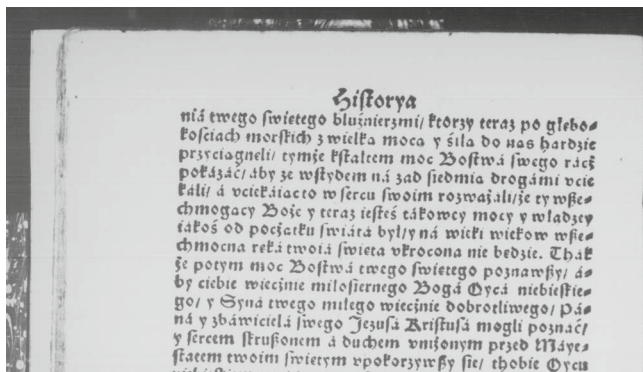 Historya
niá twego swietego bluźnierzmi/ ktorzy teraz po głebo⸗
kościach morskich z wielka moca y śiła do nas hardzie
przyciagneli/ tymże kstałtem moc Bostwá swego rácż
pokázáć/ aby ze wstydem ná zad siedmia drogámi vcie
kali/ á vciekáiac to w sercu swoim rozważali/ że ty wße⸗
chmogacy Boże y teraz iesteś tákowey mocy y władzey
iákoś od pocżatku świátá był/ y ná wieki wiekow wße⸗
chmocna reká twoiá swieta vkrocona nie bedzie. Thak
że potym moc Bostwá twego swietego poznawßy/ á⸗
by ciebie wiecżnie miłosiernego Bogá Oycá niebieskie⸗
go/ y Syná twego miłego wiecżnie dobrotliwego/ Pá⸗
ná y zbáwicielá swego Jezusá Kristusá mogli poznáć/
y sercem strußonem á duchem vniżonym przed Máye⸗
statem twoim swietym vpokorzywßy sie/ thobie Oycu